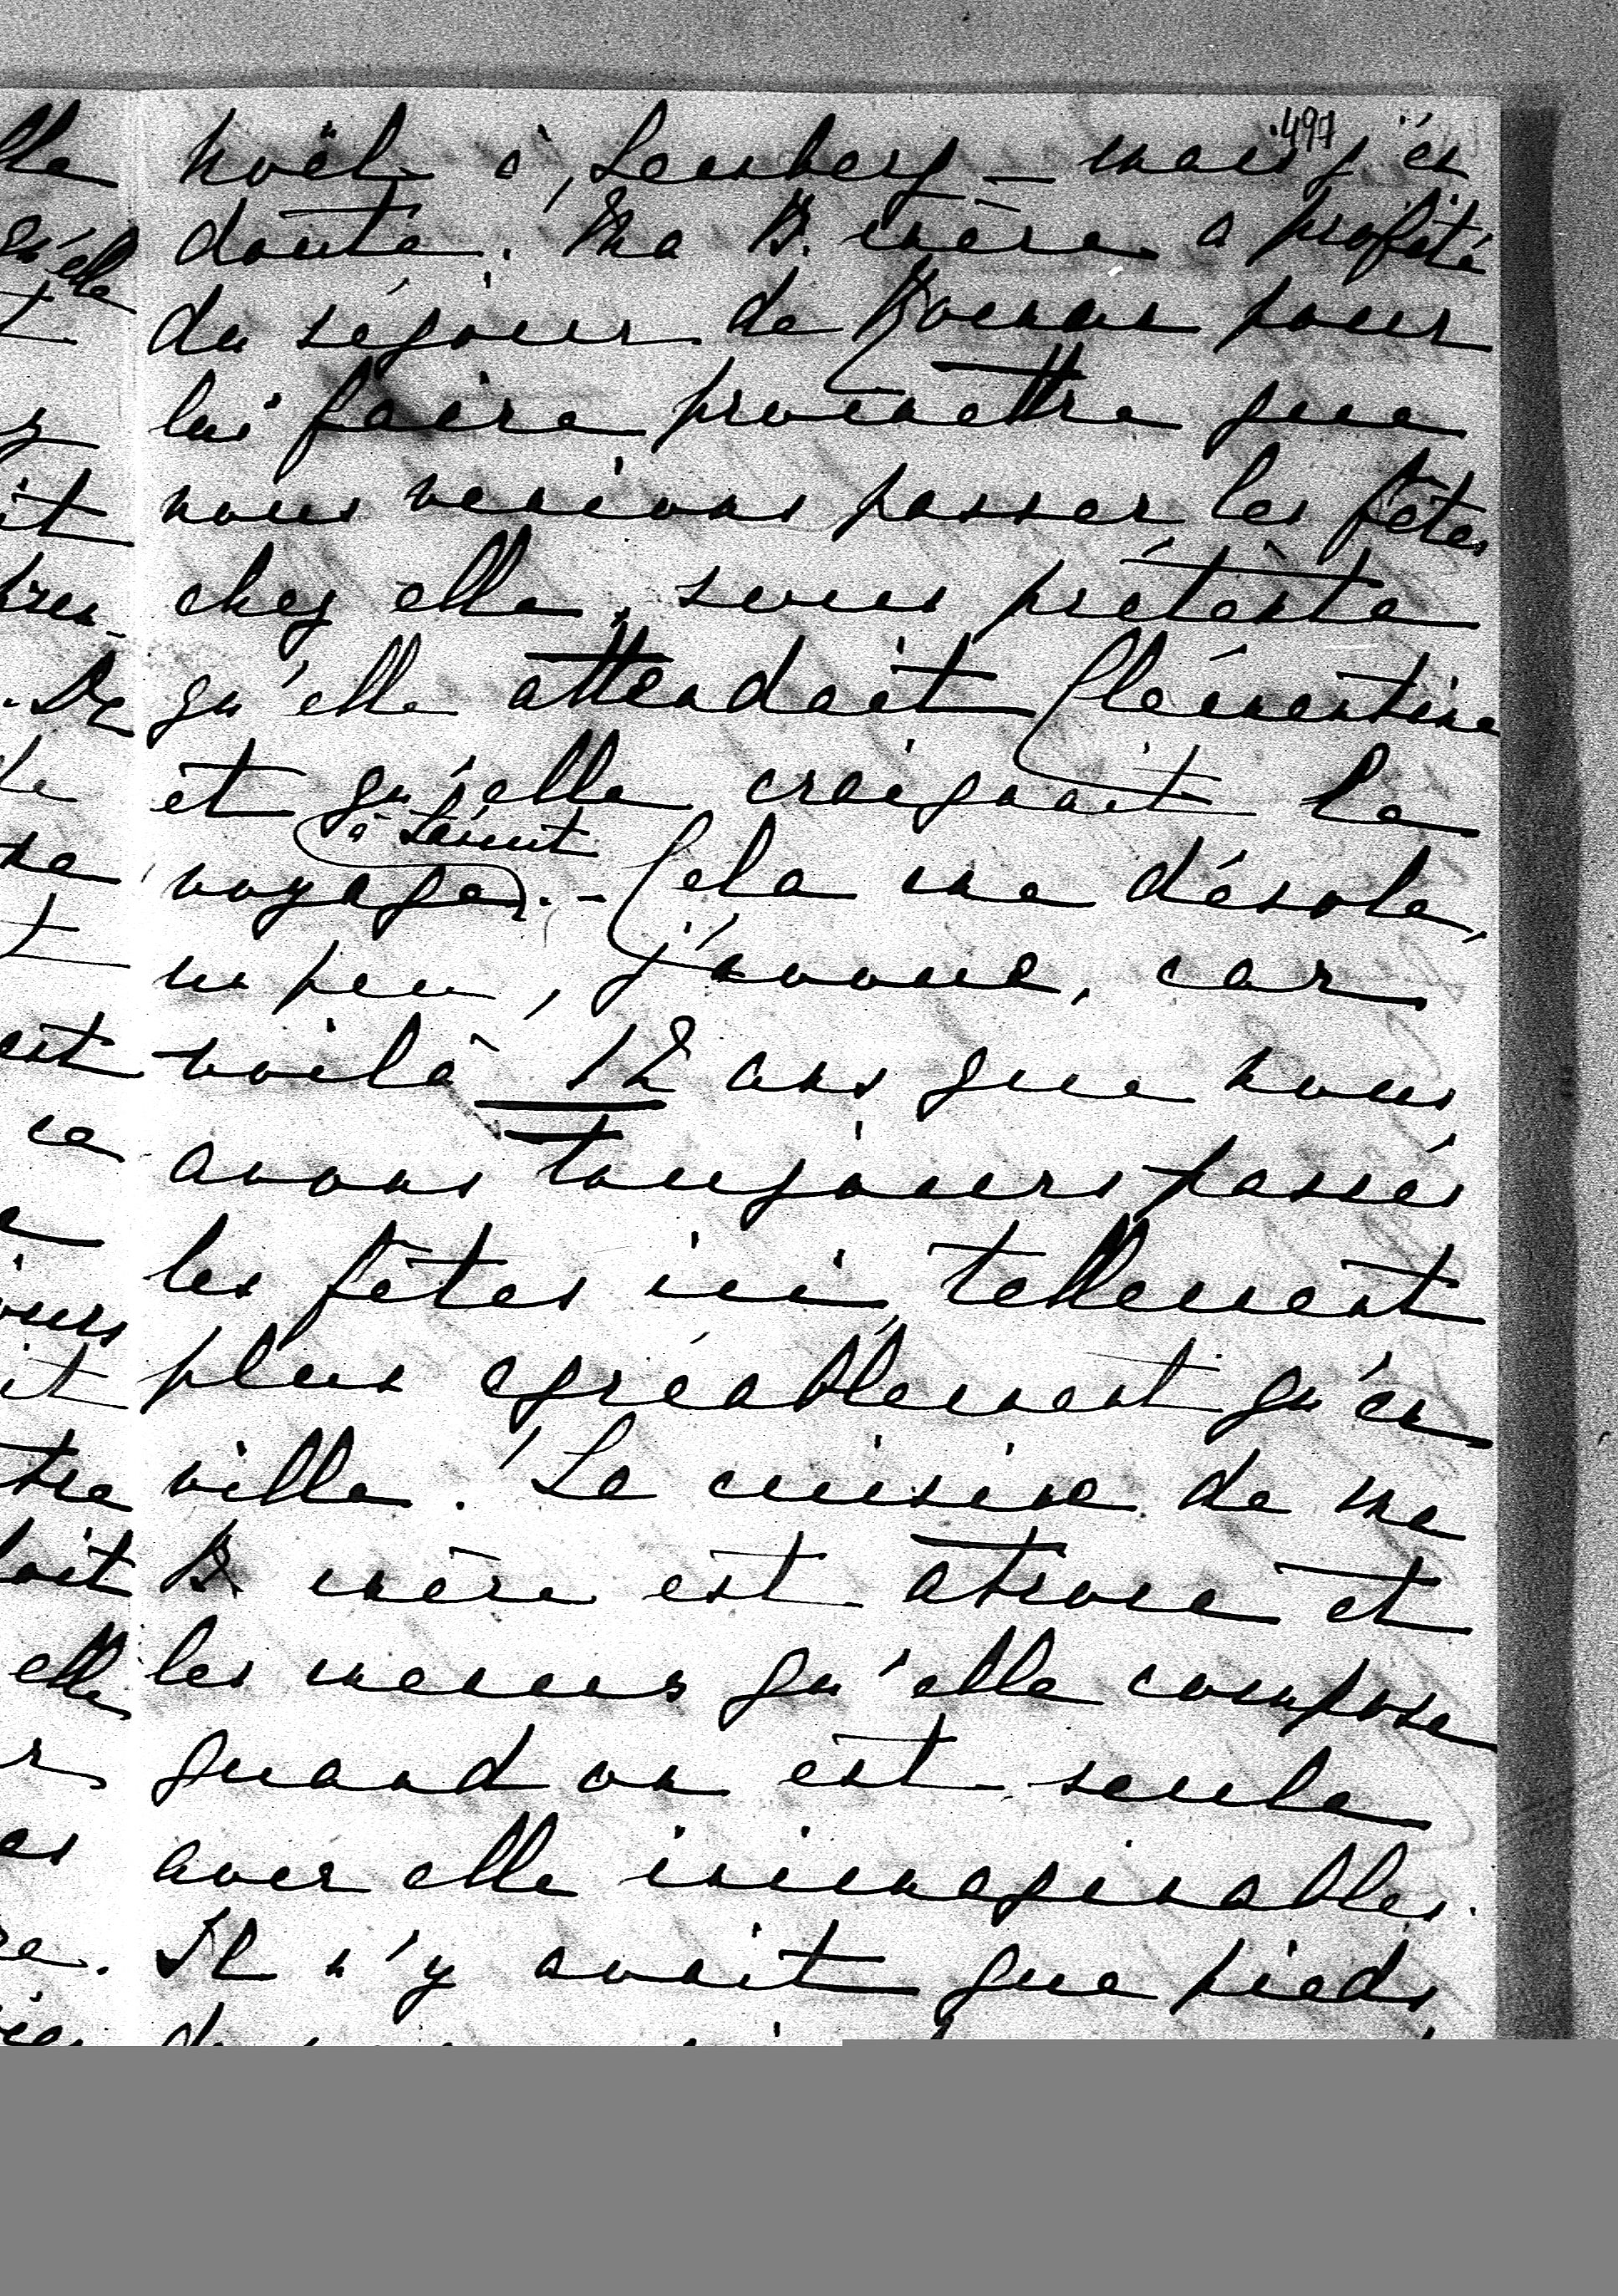 497
Noël à Lemberg – mais j'en
doute. Ma B. mère a profité
du séjour de Roman pour
lui faire promettre que
nous venions passer les fêtes
chez elle, sous prétexte
qu'elle attendait Clémentine
et qu'elle craignait le
à Łańcut
voyage. – Cela me désole,
un peu, j'avoue, car
voilà 12 ans que nous
avons toujours passés
les fêtes ici, tellement
plus agréablement qu'en
ville. La cuisine de ma
B. mère est atroce et
les menus qu'elle compose
quand on est seule
avec elle inimaginables.
Il n'y avait que pieds